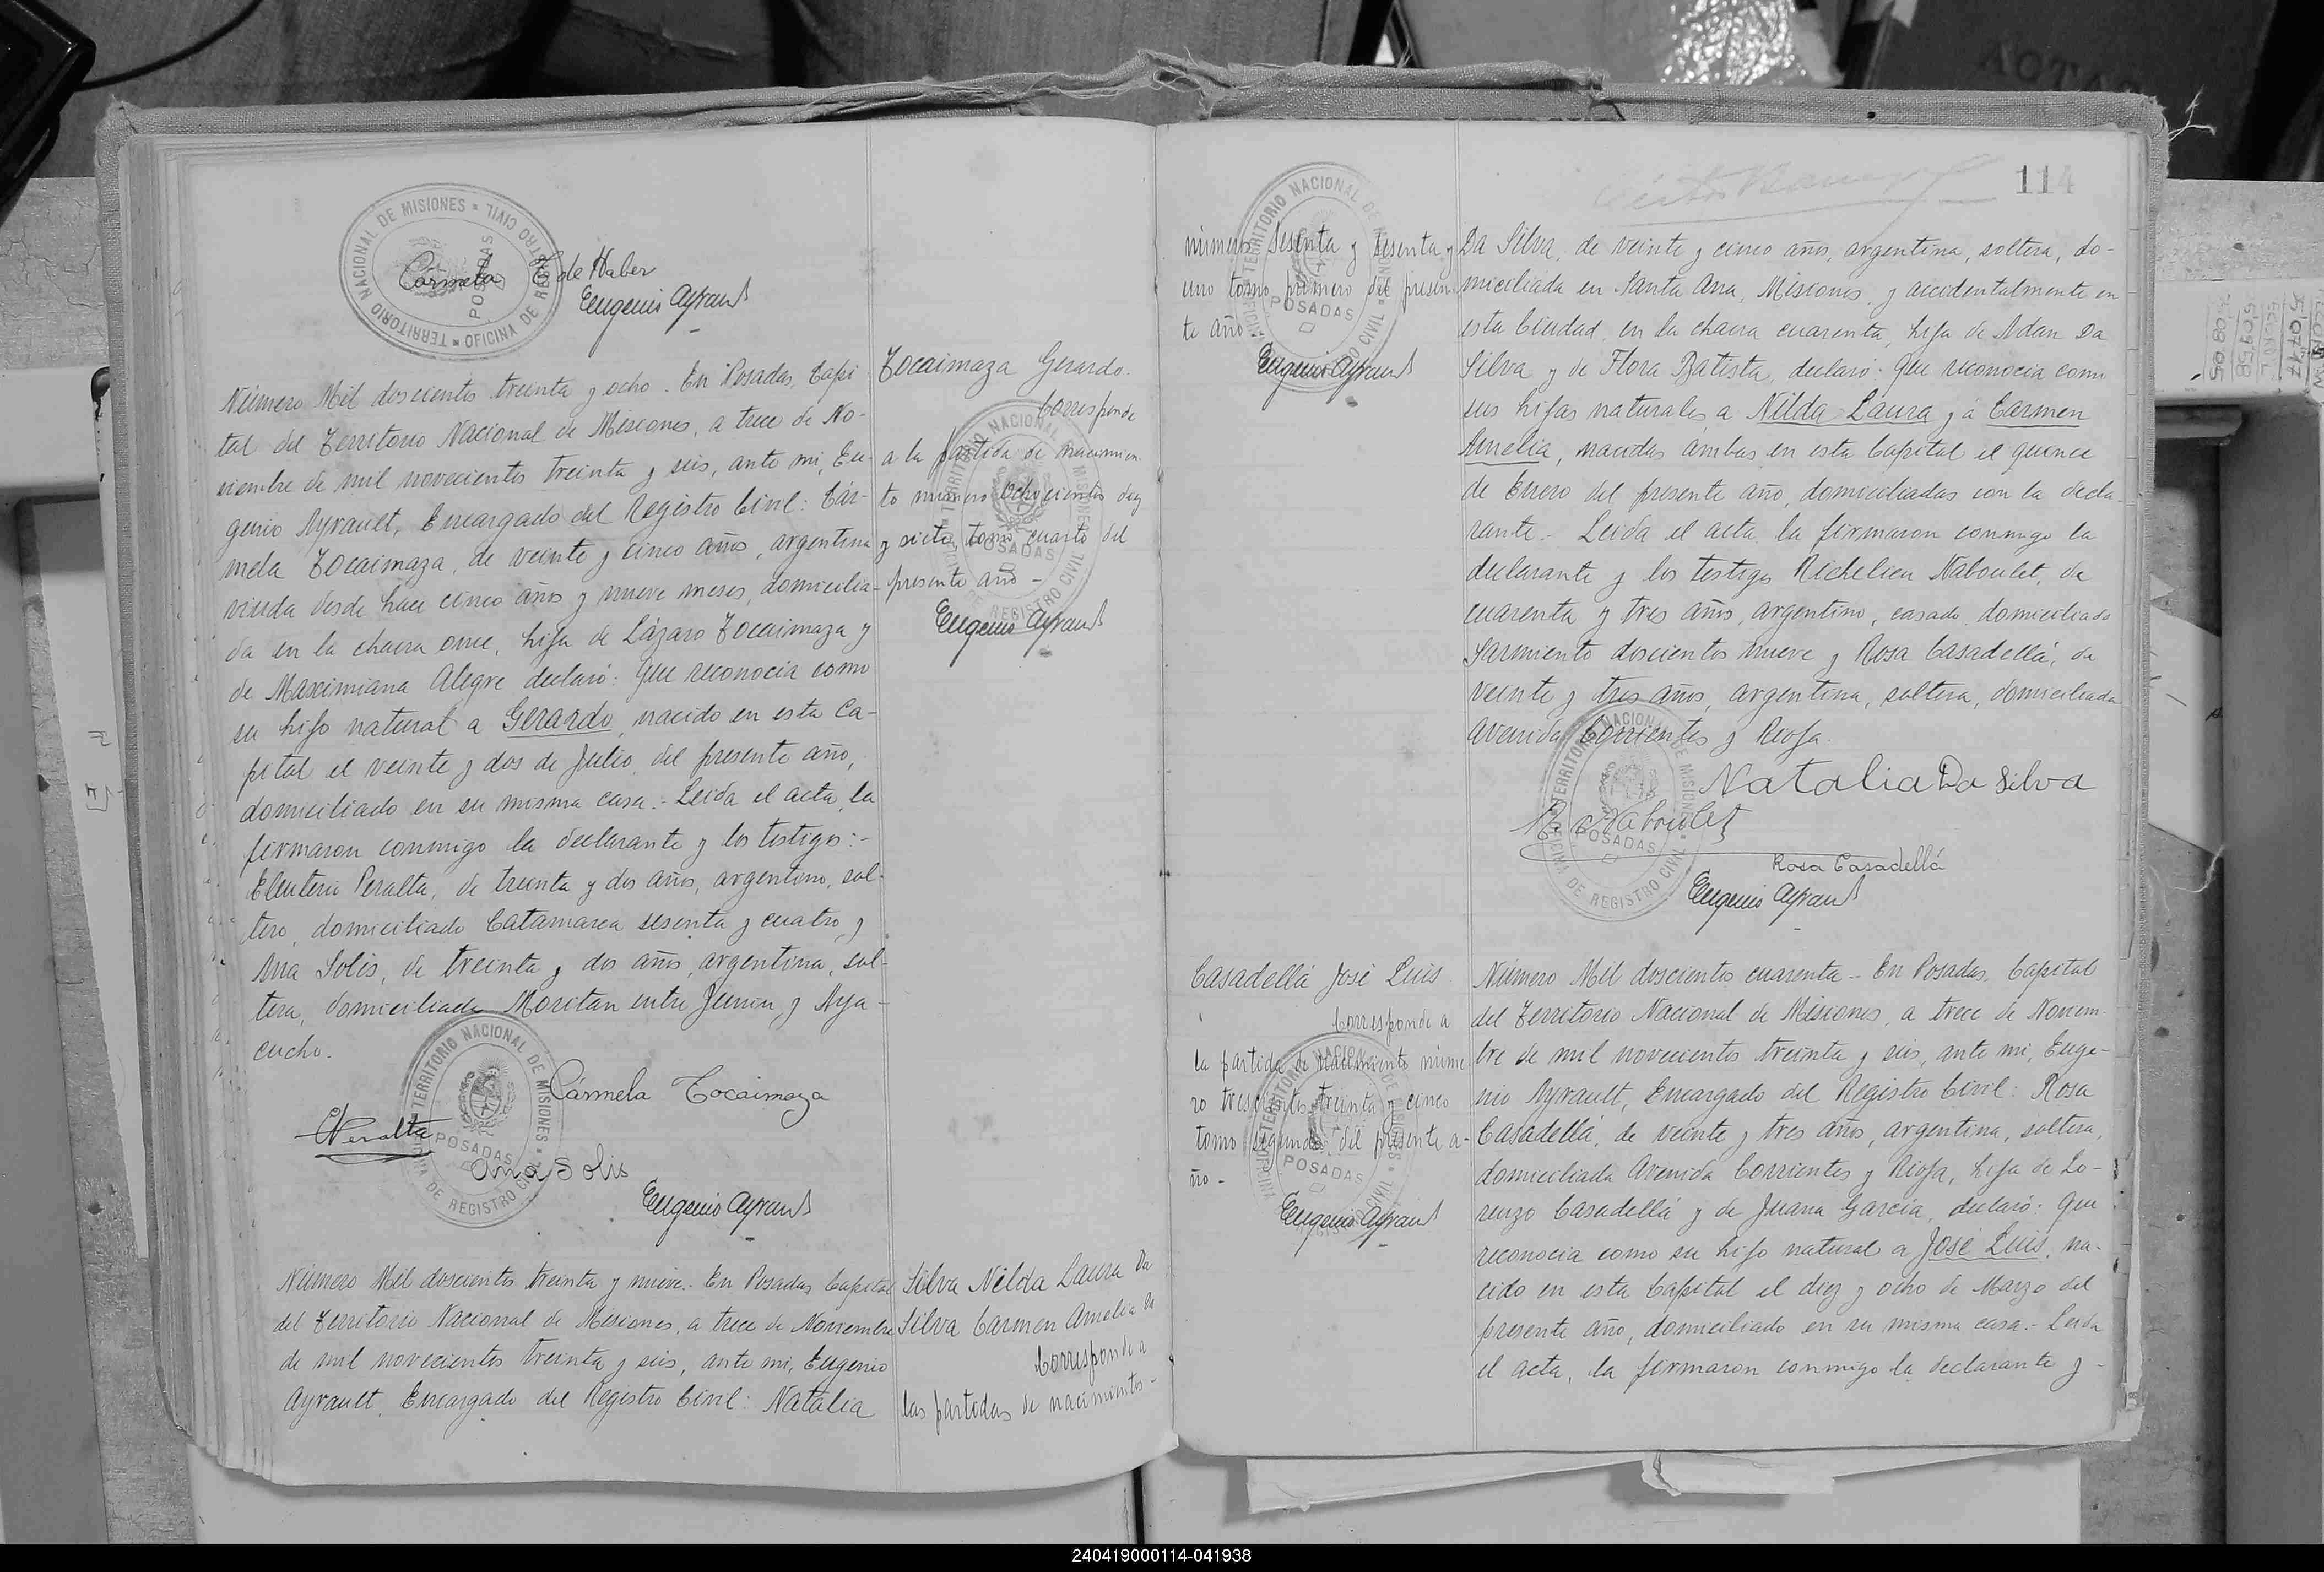 TERRITORIO NACIONAL DE MISIONES
OFICINA DE REGISTRO CIVIL
POSADAS
Cármela T. de Haber
Eugenio Ayrault
Número Mil doscientos treinta y ocho. En Posadas, Capi
tal del Territorio Nacional de Misiones, a trece de No-
viembre de mil novecientos treinta y seis, ante mi, Eu-
genio Ayrault, Encargado del Registro Civil: Cár-
mela Tocaimaza, de veinte y cinco años, argentina
viuda desde hace cinco años y nueve meses, domicilia-
da en la chacra once, hija de Lázaro Tocaimaza y
de Maximiana Alegre declaró: Que reconocia como
su hijo natural a Gerardo, nacido en esta Ca-
pital el veinte y dos de Julio del presente año,
domiciliado en su misma casa.- Leida el acta, la
firmaron conmigo la declarante y los testigos:-
Eleuterio Peralta, de treinta y dos años, argentino, sol-
tero, domiciliado Catamarca sesenta y cuatro, y
Ana Solis, de treinta y dos años, argentina, sol-
tera, domiciliada Moritan entre Junin y Aya-
cucho.
Cármela Tocaimaza
EPeralta
Ana Solis
Eugenio Ayrault
Tocaimaza Gerardo.
Corresponde
a la partida de nacimien-
to número ochocientos diez
y siete, tomo cuarto del
presente año -
Eugenio Ayrault
Número Mil doscientos treinta y nueve.- En Posadas Capital
del Territorio Nacional de Misiones, a trece de Noviembre
de mil novecientos treinta y seis, ante mi, Eugenio
Ayrault, Encargado del Registro Civil: Natalia
Silva Nilda Laura Da
Silva Carmen Amelia Da
Corresponde a
las partidas de nacimientos-
114
número sesenta y sesenta y
uno tomo primero del presen-
te año.-
Eugenio Ayrault
Da Silva, de veinte y cinco años, argentina, soltera, do-
miciliada en Santa Ana, Misiones, y accidentalmente en
esta Ciudad en la chacra cuarenta, hija de Adan Da
Silva y de Flora Batista, declaró: Que reconocia como
sus hijas naturales a Nilda Laura y a Carmen
Amelia, nacidas ambas en esta Capital el quince
de Enero del presente año, domiciliadas con la decla-
rante.- Leida el acta, la firmaron conmigo la
declarante y los testigos Richelieu Naboulet, de
cuarenta y tres años, argentino, casado, domiciliado
Sarmiento doscientos nueve y Rosa Casadellá, de
veinte y tres años, argentina, soltera, domiciliada
Avenida Corrientes y Rioja.
Natalia Da Silva
R. Naboulet
Rosa Casadellá
Eugenio Ayrault
Casadellá José Luis
Corresponde a
la partida de nacimiento núme
ro trescientos treinta y cinco
tomo segundo del presente a-
ño -
Eugenio Ayrault
Número Mil doscientos cuarenta - En Posadas, Capital
del Territorio Nacional de Misiones, a trece de Noviem-
bre de mil novecientos treinta y seis, ante mi, Euge-
nio Ayrault, Encargado del Registro Civil: Rosa
Casadellá, de veinte y tres años, argentina, soltera,
domiciliada Avenida Corrientes y Rioja, hija de Lo-
renzo Casadellá y de Juana Garcia, declaró: Que
reconocia como su hijo natural a José Luis, na-
cido en esta Capital el diez y ocho de Marzo del
presente año, domiciliado en su misma casa.- Leida
el acta, la firmaron conmigo la declarante y -
240419000114-041938